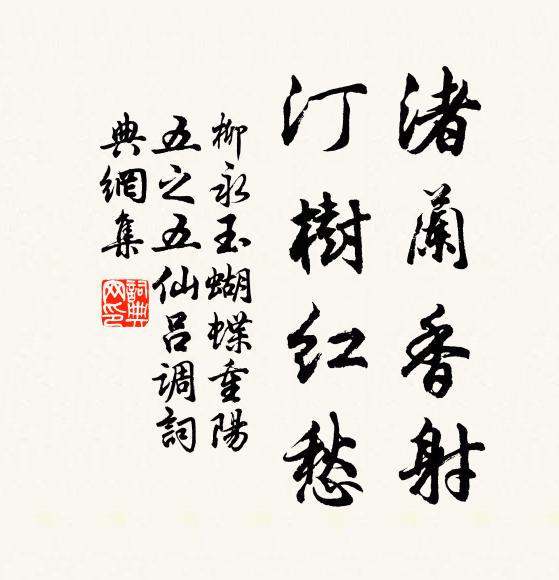 渚蘭香射
汀樹紅愁
柳永玉蝴蝶重陽
五之五仙呂调詞
典網集
詞典
网印